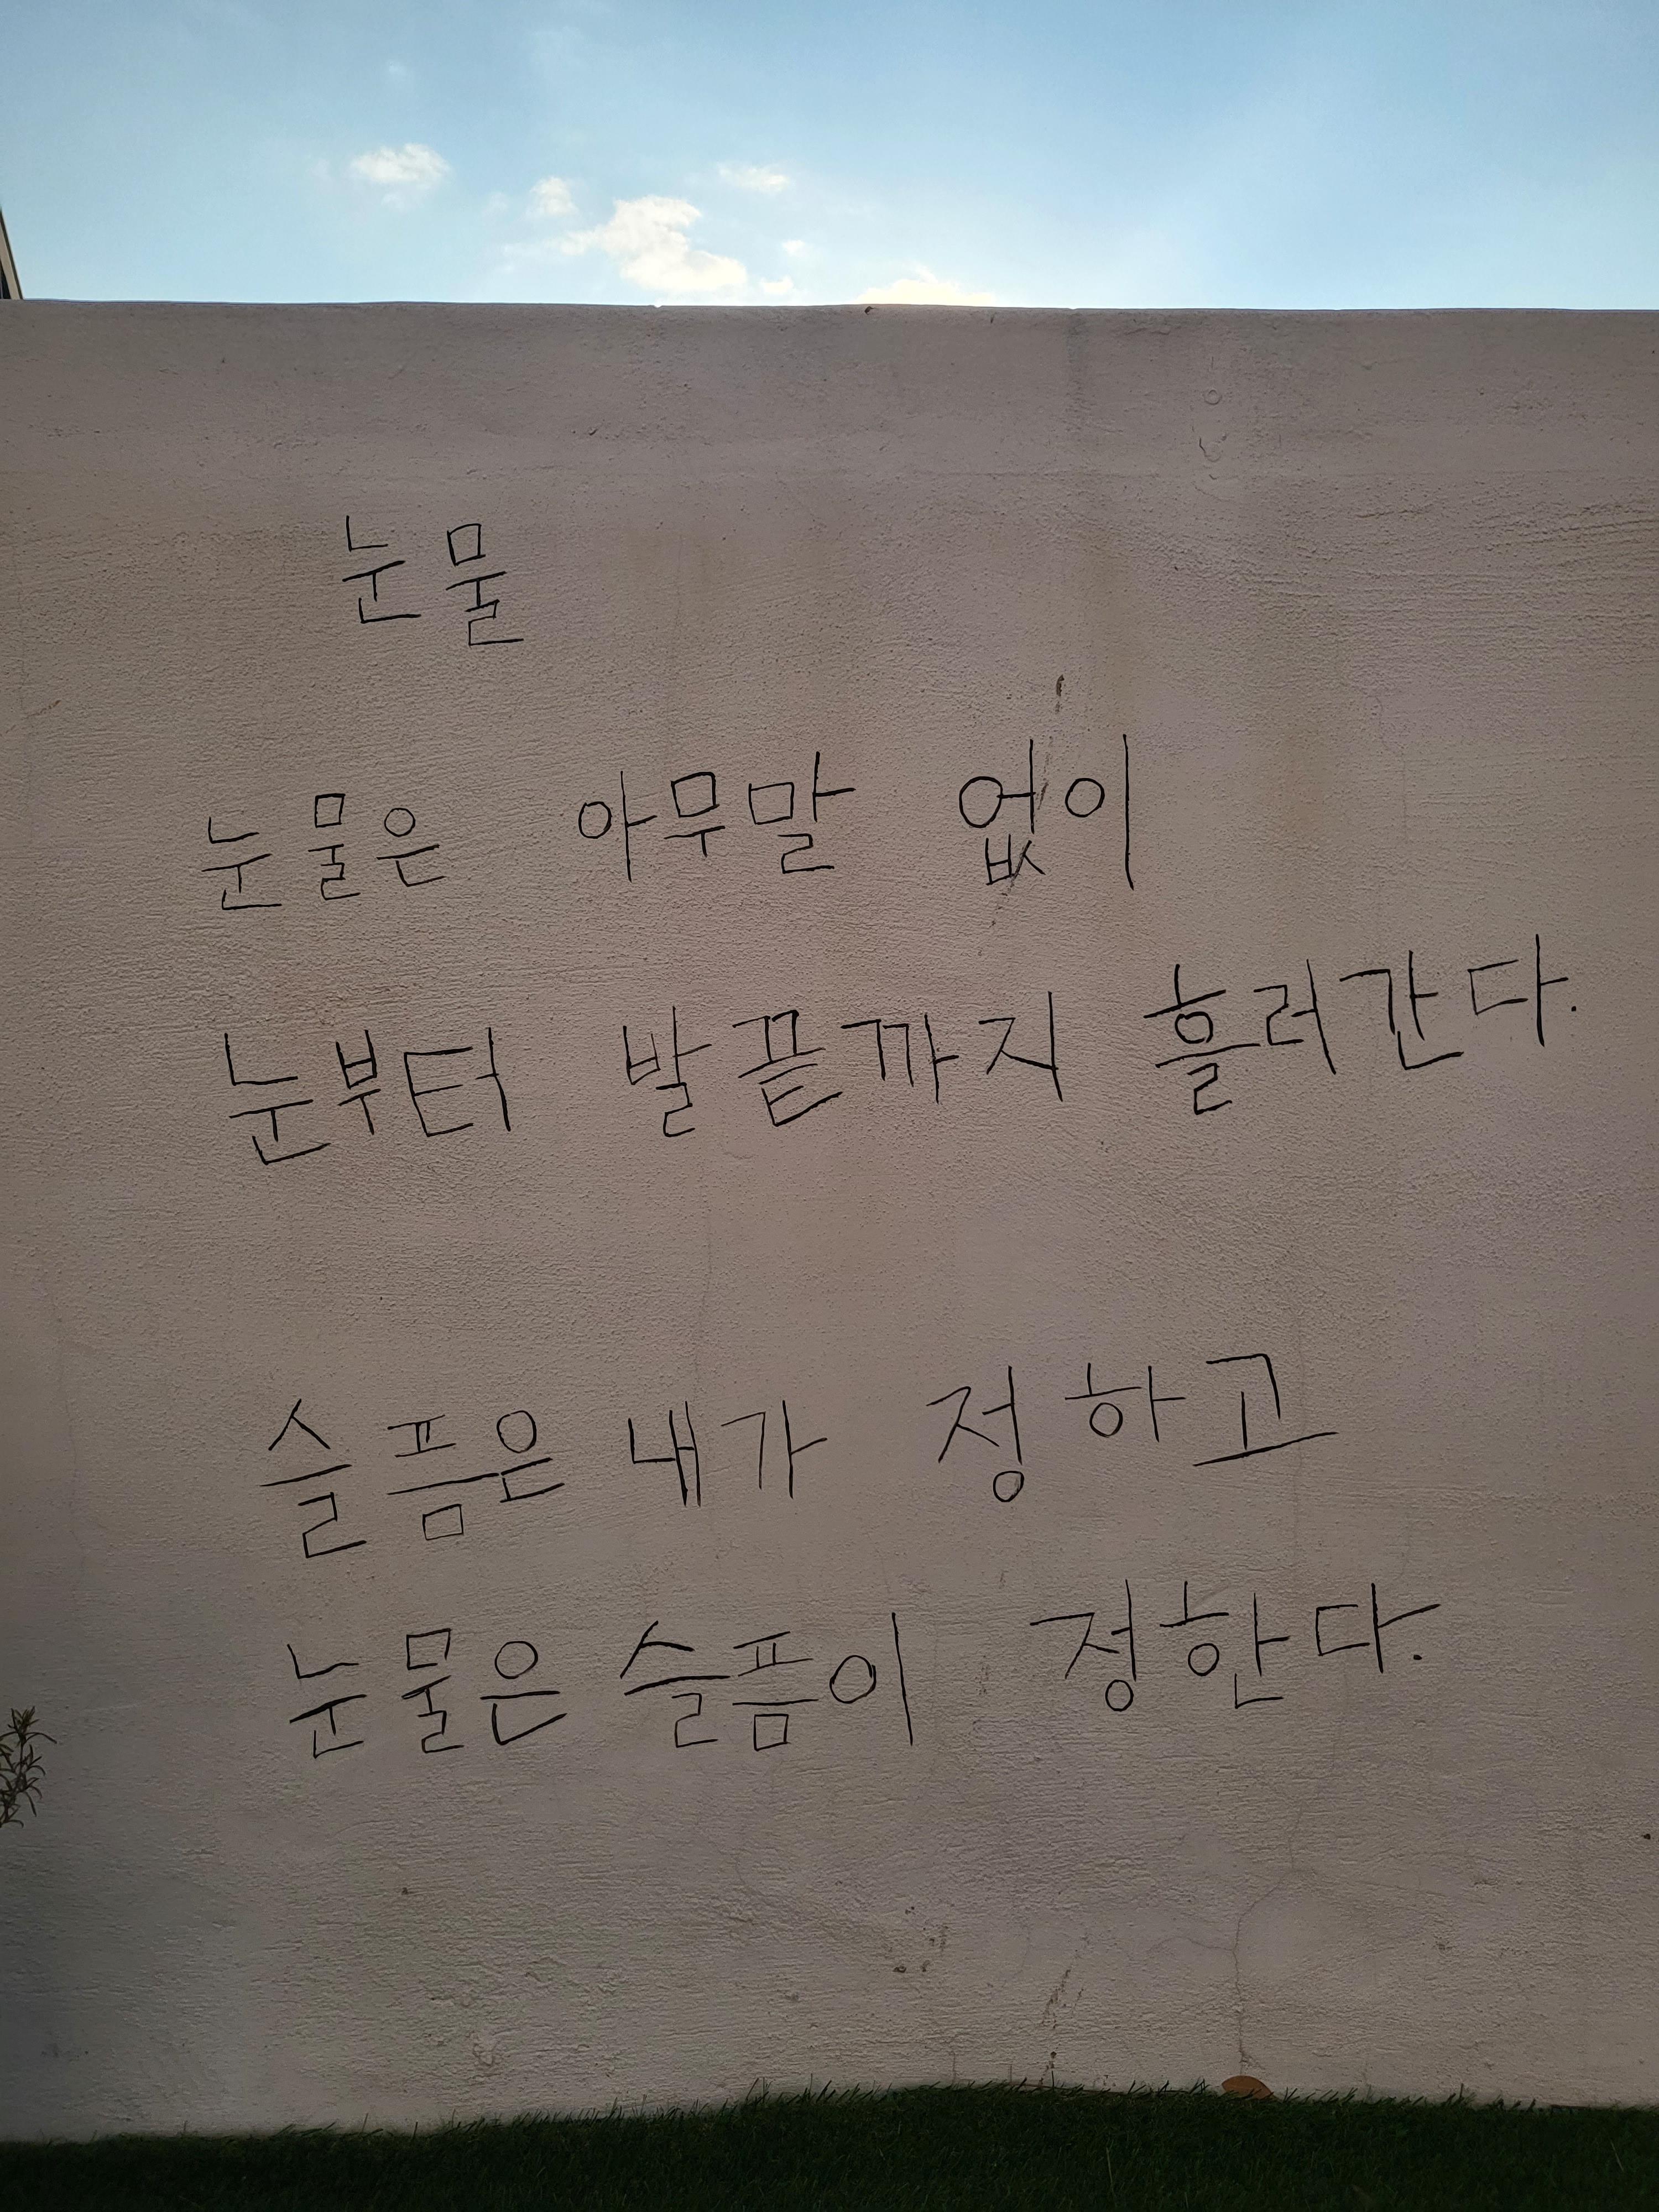 눈물
눈물은 아무말 없이
눈부터 발끝까지 흘러간다.
슬픔은 내가 정하고
눈물은 슬픔이 정한다.